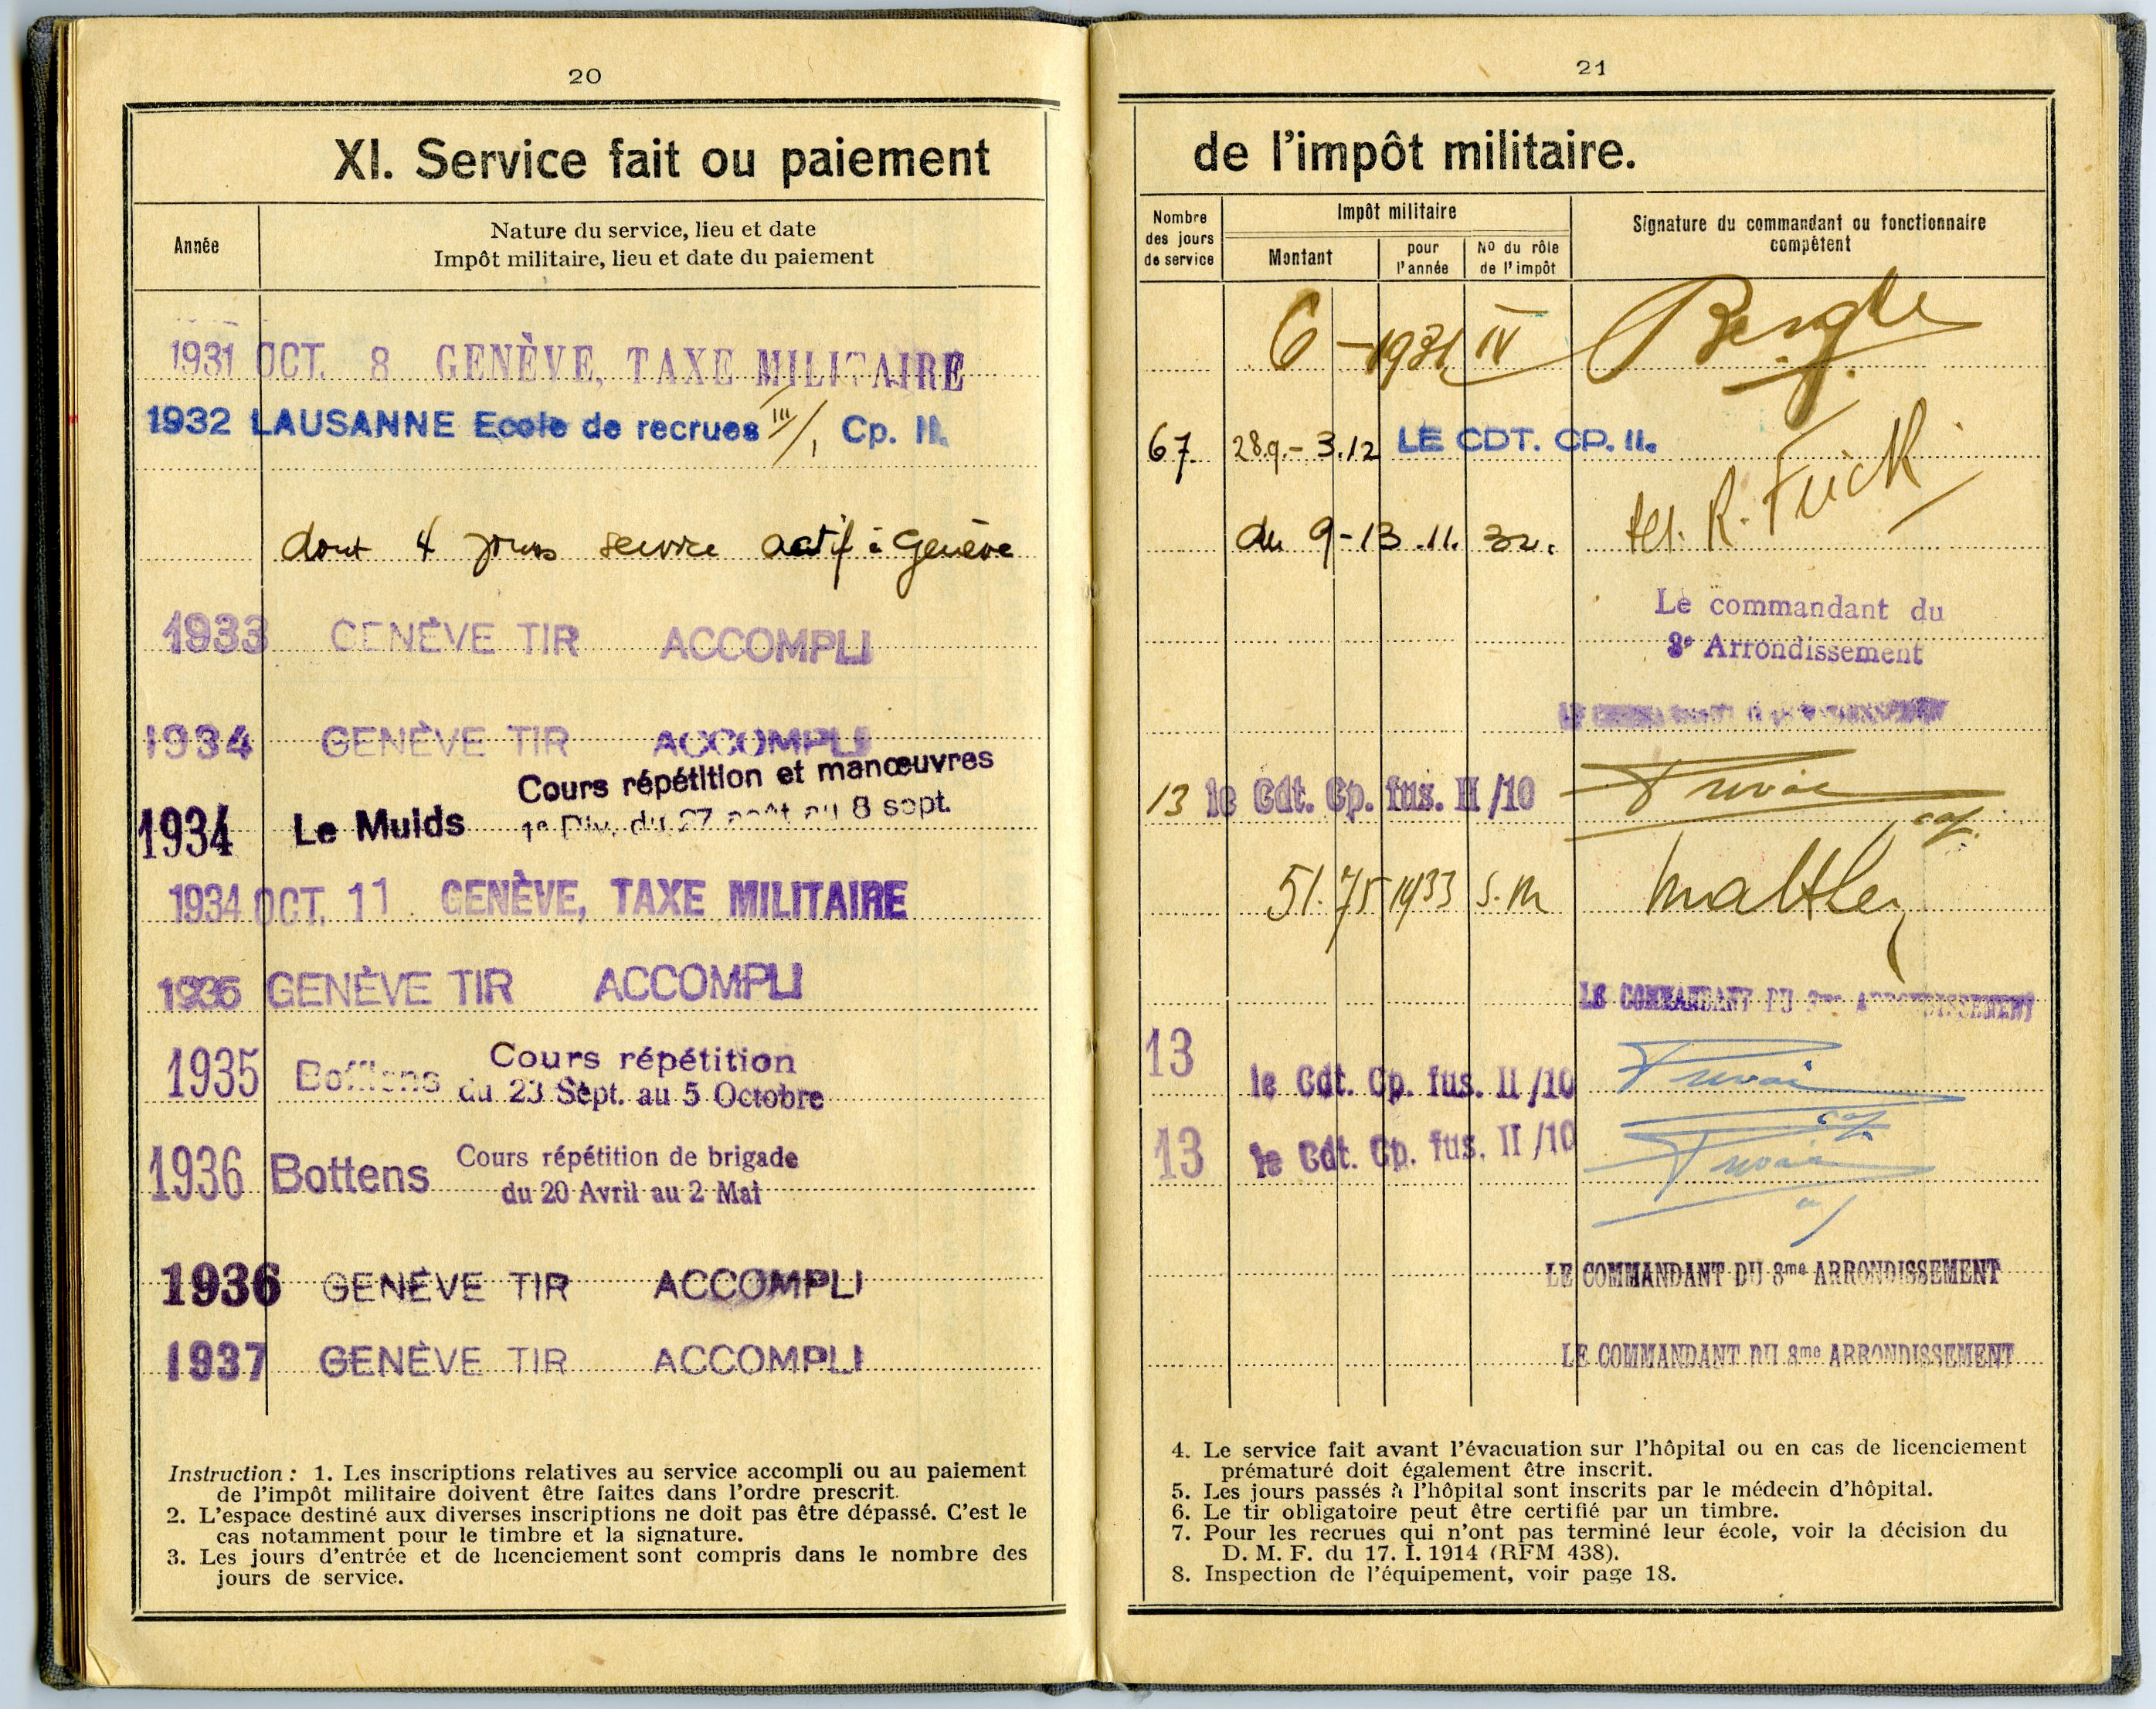 20
XI. Service fait ou paiement
Année
Nature du service, lieu et date
Impôt militaire, lieu et date du paiement
1931 OCT. 8 GENÈVE, TAXE MILITAIRE
1932 LAUSANNE Ecole de recrues III/1 Cp. II.
dont 4 jours service actif à Genève
1933 GENÈVE TIR ACCOMPLI
1934 GENÈVE TIR ACCOMPLI
Cours répétition et manœuvres
1934 Le Muids 1e Div. du 27 août au 8 sept.
1934 OCT. 11 GENÈVE, TAXE MILITAIRE
1935 GENÈVE TIR ACCOMPLI
Cours répétition
1935 Bofflens du 23 Sept. au 5 Octobre
Cours répétition de brigade
1936 Bottens
du 20 Avril au 2 Mai
1936 GENÈVE TIR ACCOMPLI
1937 GENÈVE TIR ACCOMPLI
Instruction : 1. Les inscriptions relatives au service accompli ou au paiement
de l'impôt militaire doivent être faites dans l'ordre prescrit.
2. L'espace destiné aux diverses inscriptions ne doit pas être dépassé. C'est le
cas notamment pour le timbre et la signature.
3. Les jours d'entrée et de licenciement sont compris dans le nombre des
jours de service.
21
de l'impôt militaire.
Nombre
des jours
de service
Impôt militaire
Montant
pour
l'année
No du rôle
de l'impôt
Signature du commandant ou fonctionnaire
compétent
6 – 1931 IV
67. 28.9. – 3.12 LE CDT. CP. II.
du 9 – 13 .11. 32. R. Frick
Le commandant du
8e Arrondissement
13 le Cdt. Cp. fus. II /10
cap.
51.75 1933 S.M
LE COMMANDANT DU 8me ARRONDISSEMENT
13 le Cdt. Cp. fus. II /10
cap.
13 le Cdt. Cp. fus. II /10
LE COMMANDANT DU 8me ARRONDISSEMENT
LE COMMANDANT DU 8me ARRONDISSEMENT
4. Le service fait avant l'évacuation sur l'hôpital ou en cas de licenciement
prématuré doit également être inscrit.
5. Les jours passés à l'hôpital sont inscrits par le médecin d'hôpital.
6. Le tir obligatoire peut être certifié par un timbre.
7. Pour les recrues qui n'ont pas terminé leur école, voir la décision du
D. M. F. du 17. I. 1914 (RFM 438).
8. Inspection de l'équipement, voir page 18.